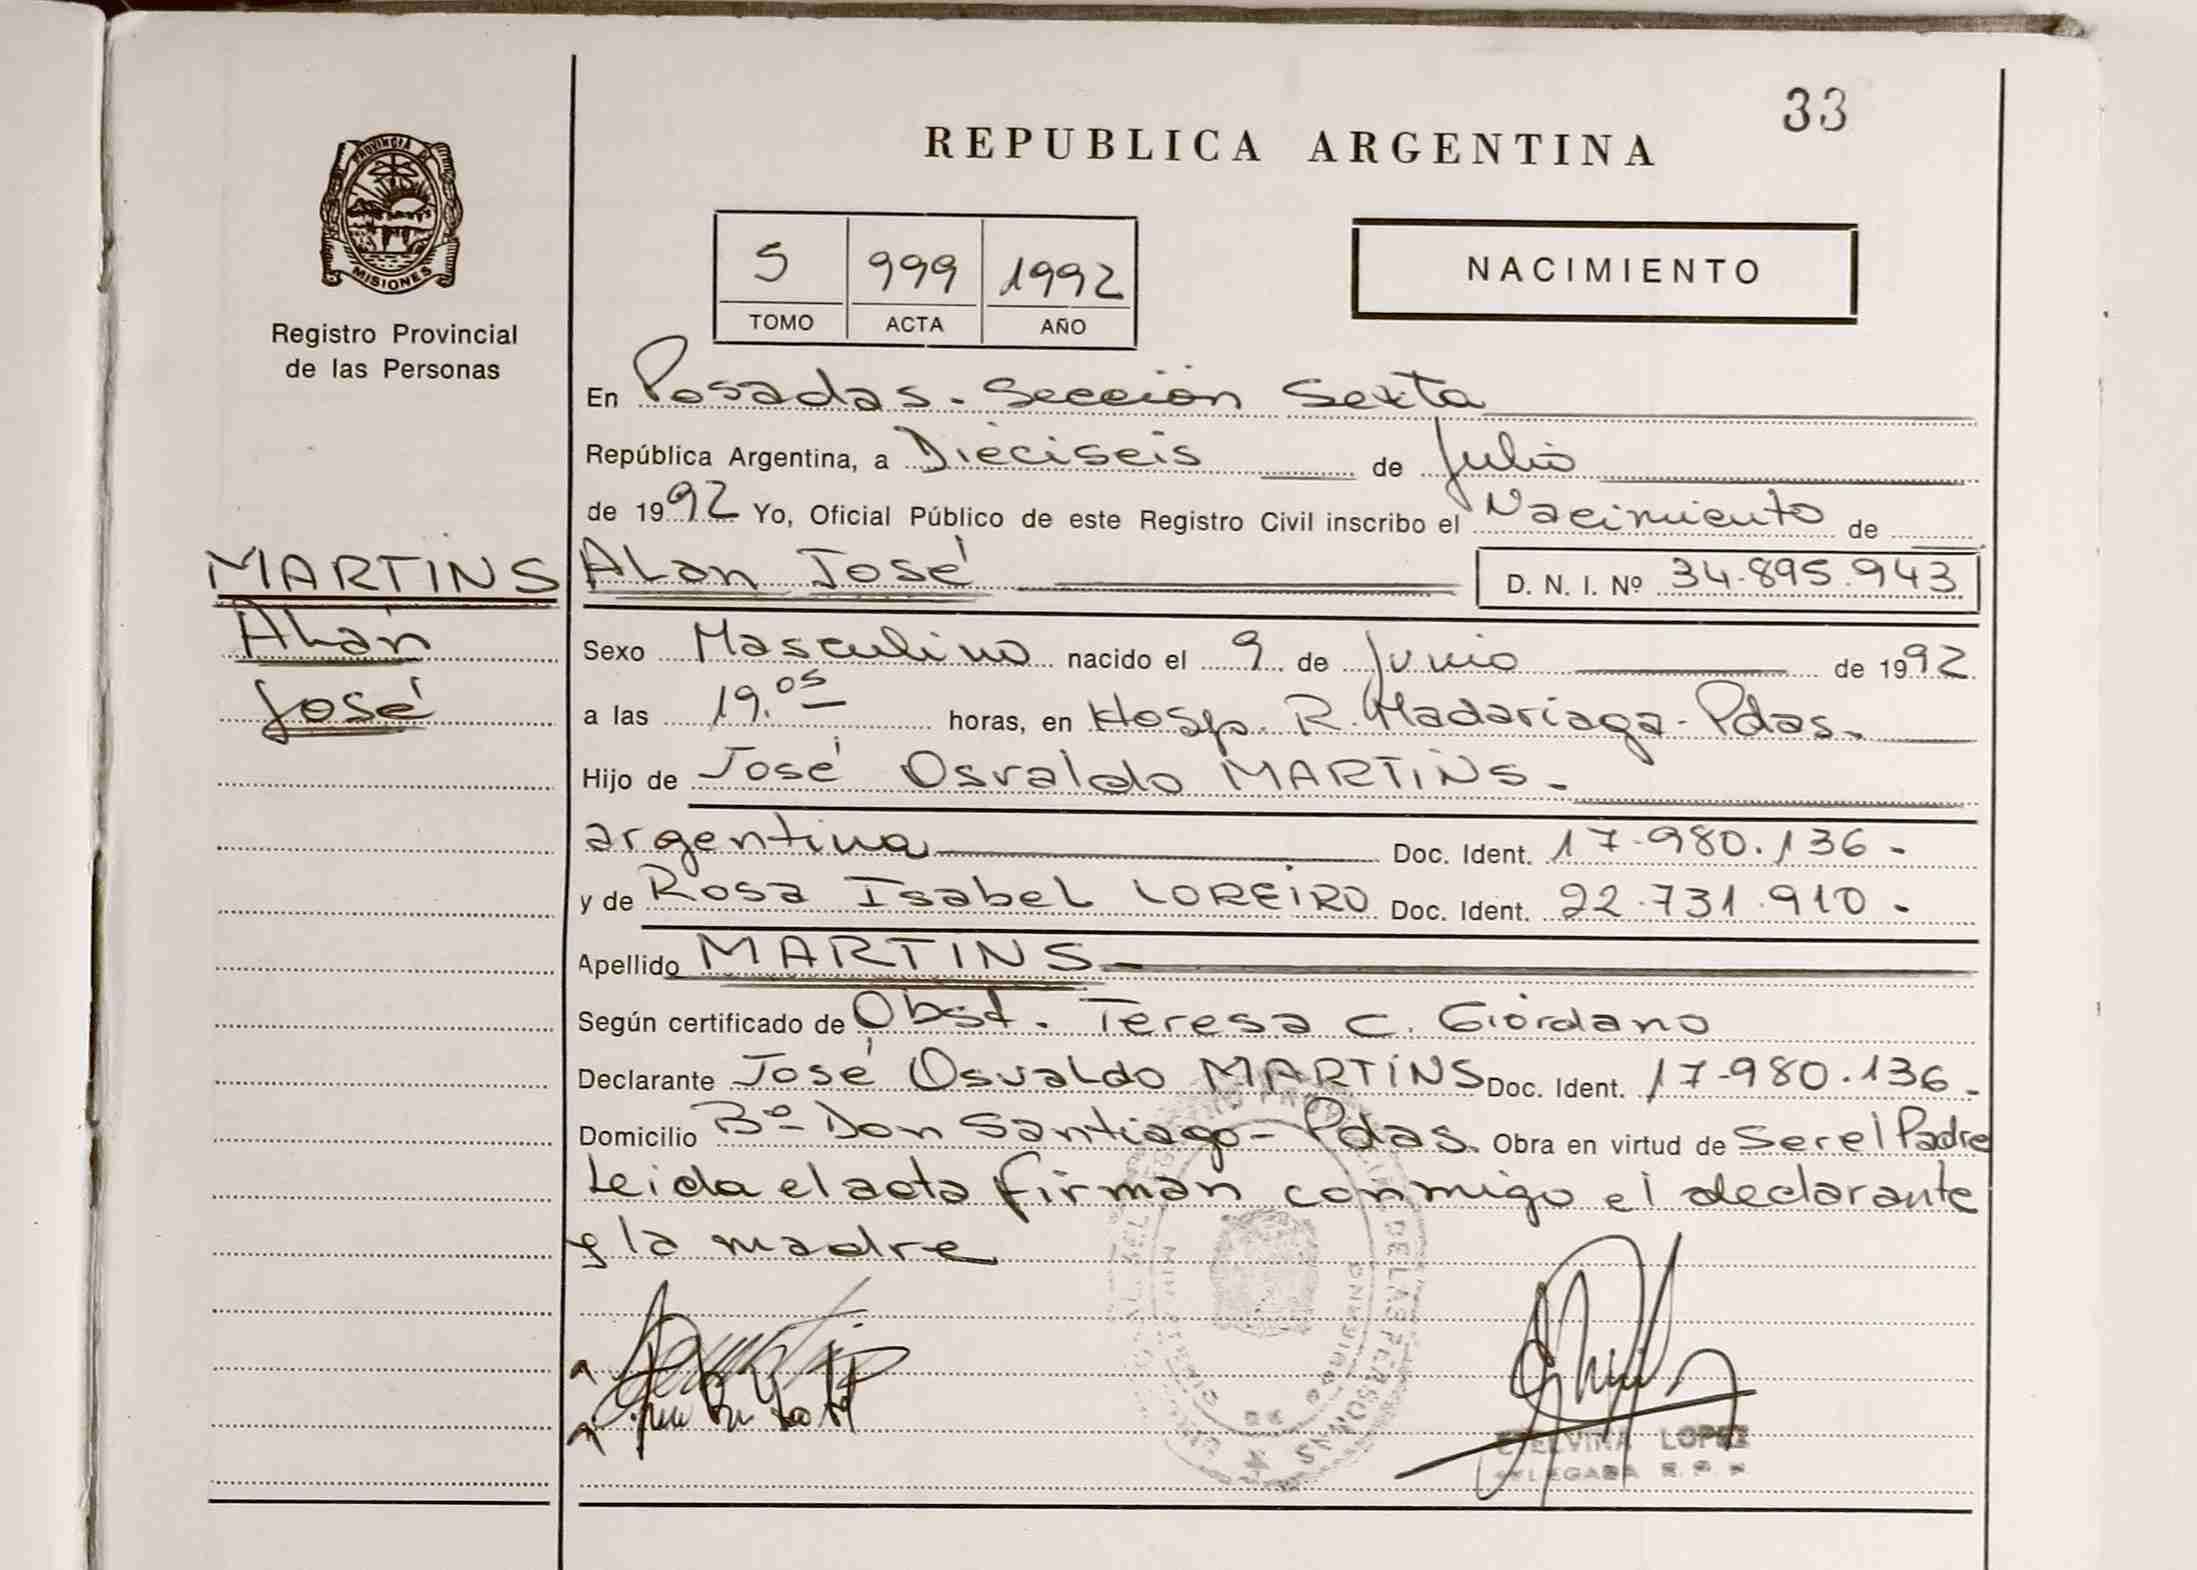 33
REPUBLICA ARGENTINA
PROVINCIA DE
MISIONES
Registro Provincial
de las Personas
5 999 1992
TOMO ACTA AÑO
NACIMIENTO
En Posadas. Sección Sexta
República Argentina, a Dieciseis de Julio
de 1992 Yo, Oficial Público de este Registro Civil inscribo el Nacimiento de
MARTINS Alan José D. N. I. Nº 34.895.943
Alan
José
Sexo Masculino nacido el 9 de Junio de 1992
a las 19.05 horas, en Hosp. R. Madariaga - Pdas.
Hijo de José Osvaldo MARTINS.
argentina Doc. Ident. 17.980.136.
y de Rosa Isabel LOREIRO Doc. Ident. 22.731.910.
Apellido MARTINS
Según certificado de Obst. Teresa C. Giordano
Declarante José Osvaldo MARTINS Doc. Ident. 17.980.136.
Domicilio Bº Don Santiago - Pdas. Obra en virtud de Ser el Padre
Leida el acta firman conmigo el declarante
y la madre
DE LAS PERSONAS
ETELVINA LOPEZ
DELEGADA R. P. P.